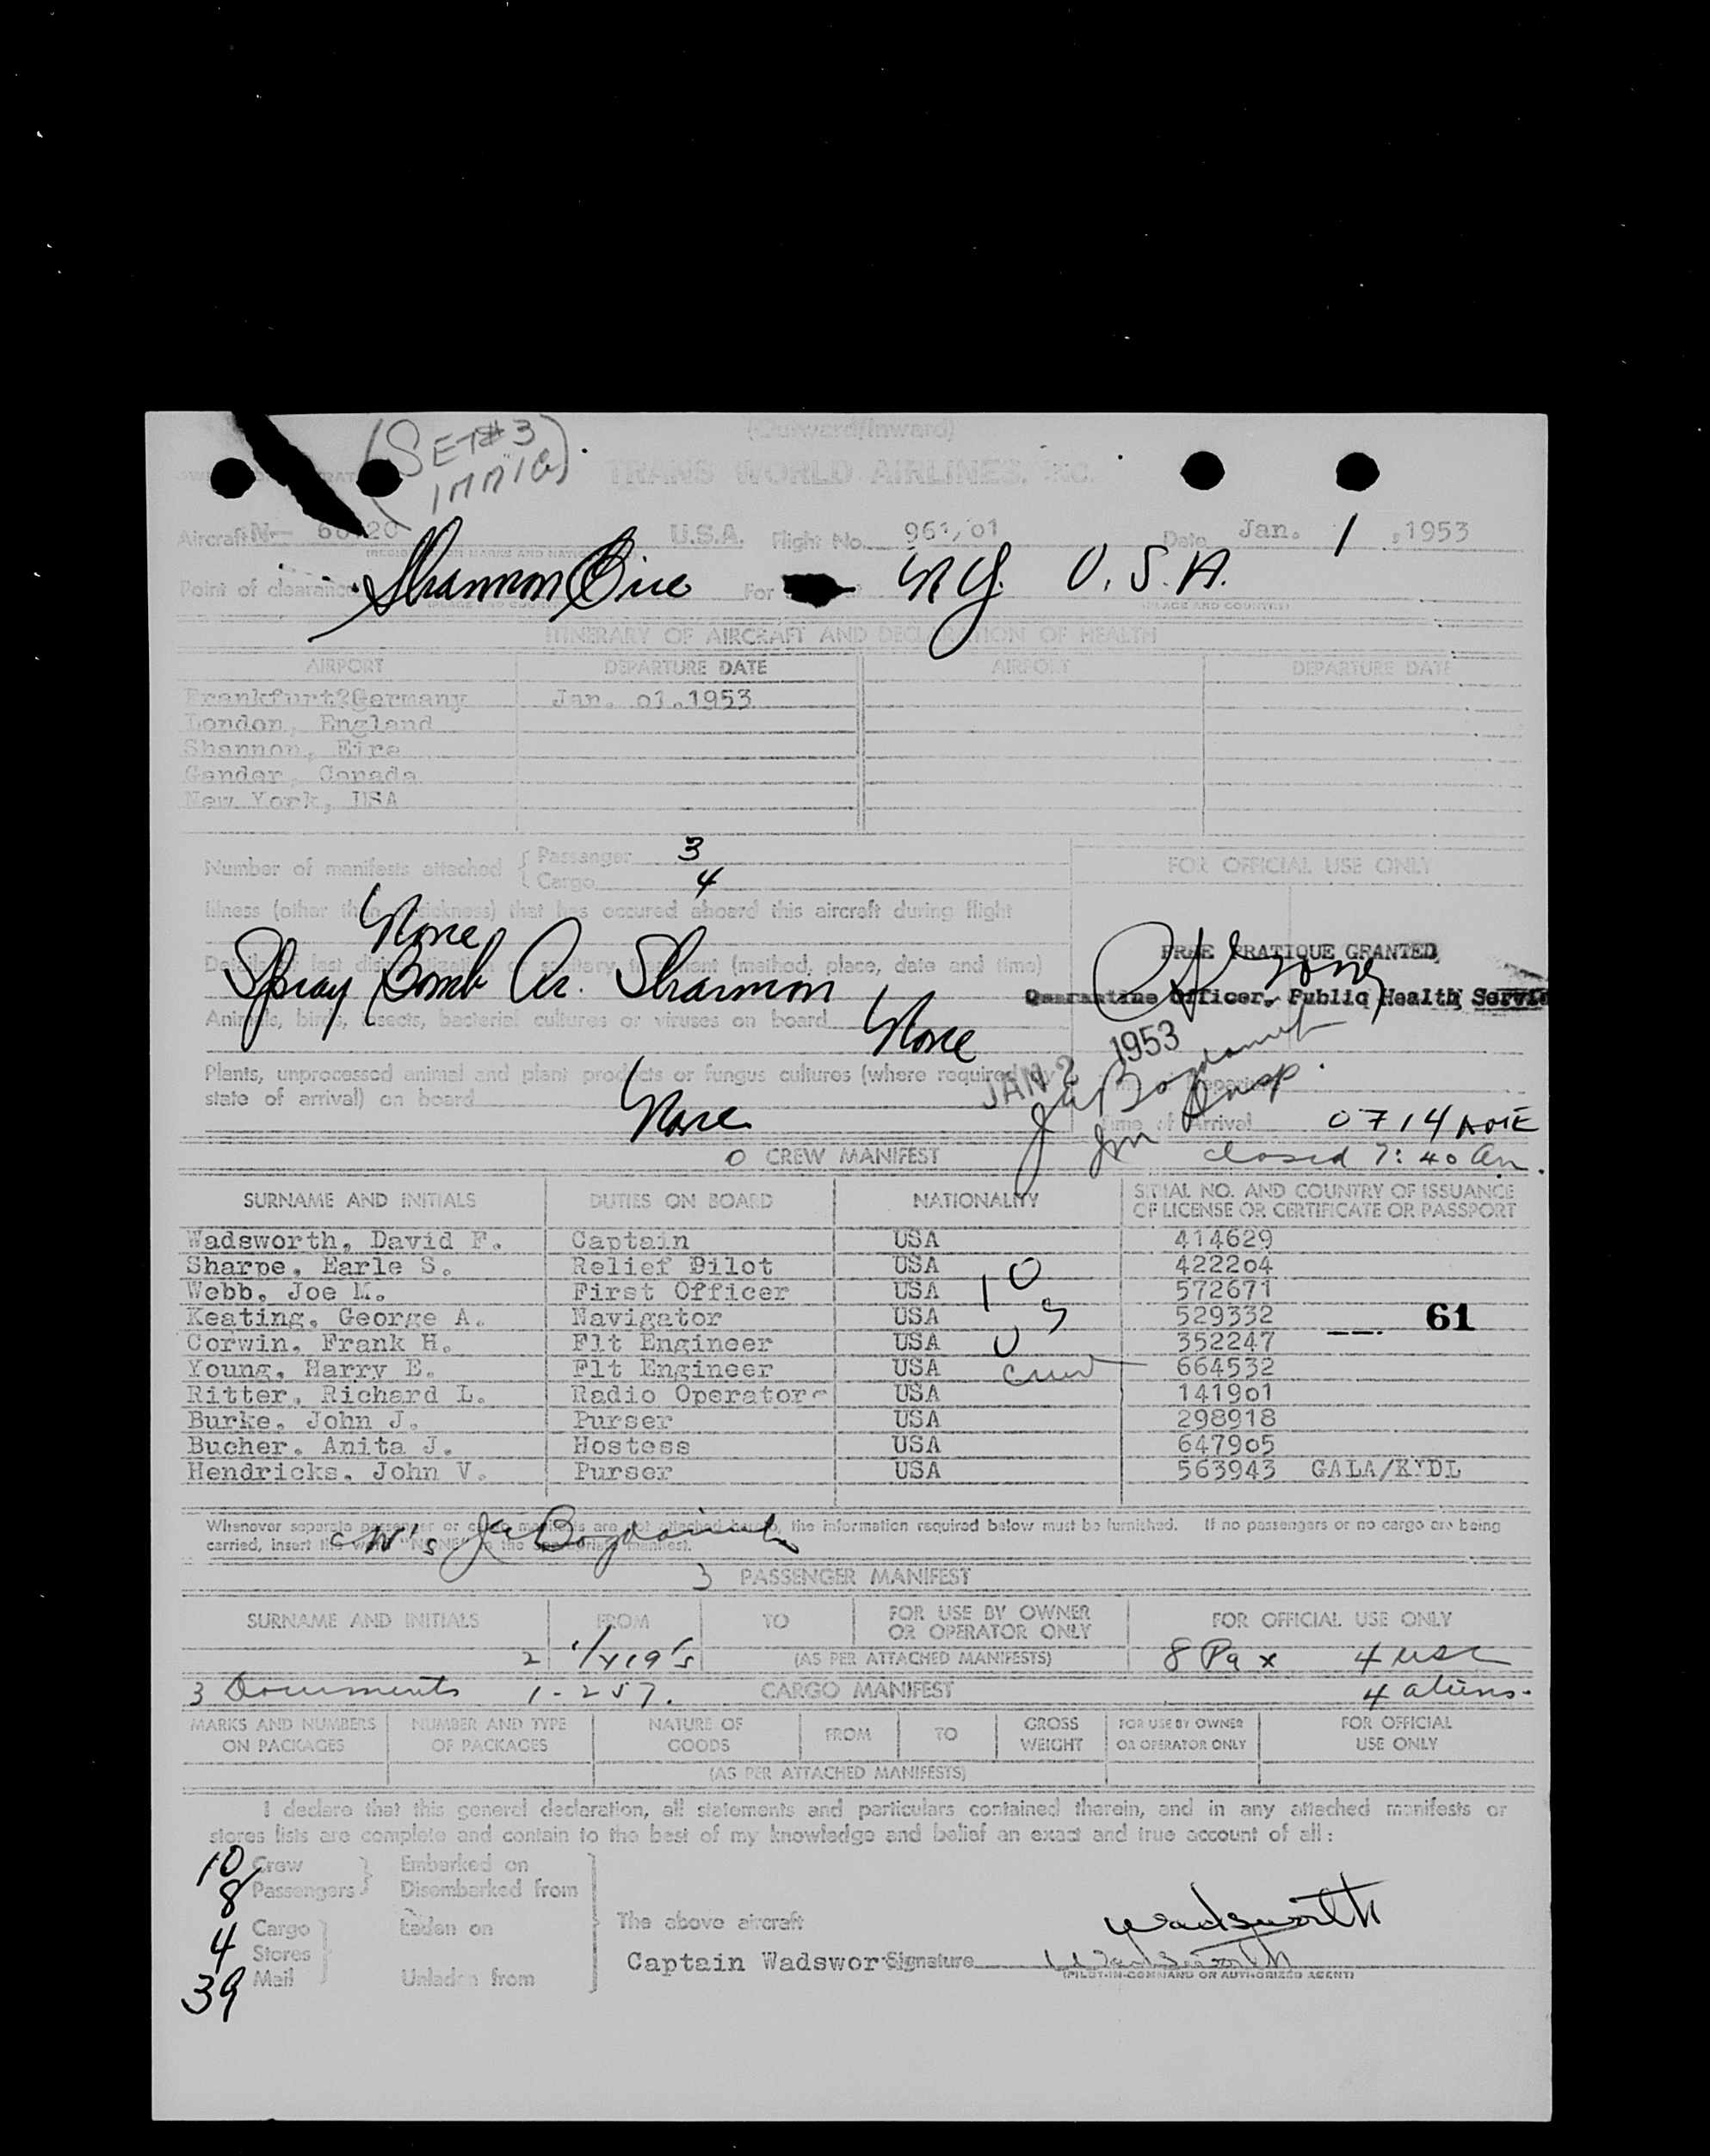 (SET #3
IMMIG)
(Outward/Inward)
TRANS WORLD AIRLINES, INC.
Aircraft N- U.S.A. Flight No. 961/01 Date Jan. 1, 1953
(REGISTRATION MARKS AND NATIONALITY)
Point of clearance Shannon Eire For NY. U.S.A.
(PLACE AND COUNTRY) (PLACE AND COUNTRY)
ITINERARY OF AIRCRAFT AND DECLARATION OF HEALTH
AIRPORT DEPARTURE DATE AIRPORT DEPARTURE DATE
Frankfurt?Germany Jan. 01.1953
London, England
Shannon, Eire
Gander, Canada
New York, USA
Number of manifests attached { Passenger 3
Cargo 4
FOR OFFICIAL USE ONLY
Illness (other than airsickness) that has occured aboard this aircraft during flight
None
Details of last disinsectization or sanitary treatment (method, place, date and time)
Spray Bomb Ar. Shannon
FREE PRATIQUE GRANTED,
Quarantine Officer, Public Health Service
Animals, birds, insects, bacterial cultures or viruses on board None
JAN 2 1953
Plants, unprocessed animal and plant products or fungus cultures (where required by
state of arrival) on board None
Time of Departure
Insp.
Time of Arrival 0714 AME
closed 7:40 am.
0 CREW MANIFEST
SURNAME AND INITIALS DUTIES ON BOARD NATIONALITY SERIAL NO. AND COUNTRY OF ISSUANCE
OF LICENSE OR CERTIFICATE OR PASSPORT
Wadsworth, David F. Captain USA 414629
Sharpe, Earle S. Relief Pilot USA 422204
Webb, Joe M. First Officer USA 10 572671
Keating, George A. Navigator USA 529332 61
Corwin, Frank H. Flt Engineer USA 352247
Young, Harry E. Flt Engineer USA 664532
Ritter, Richard L. Radio Operator USA 141901
Burke, John J. Purser USA 298918
Bucher, Anita J. Hostess USA 647905
Hendricks, John V. Purser USA 563943 GALA/KNDL
Whenever separate passenger or cargo manifests are not attached hereto, the information required below must be furnished. If no passengers or no cargo are being
carried, insert the word "NONE" in the appropriate manifest.
3 PASSENGER MANIFEST
SURNAME AND INITIALS FROM TO FOR USE BY OWNER
OR OPERATOR ONLY FOR OFFICIAL USE ONLY
(AS PER ATTACHED MANIFESTS) 8 Pax 4 usc
3 Documents 1-257. CARGO MANIFEST 4 aliens.
MARKS AND NUMBERS
ON PACKAGES NUMBER AND TYPE
OF PACKAGES NATURE OF
GOODS FROM TO GROSS
WEIGHT FOR USE BY OWNER
OR OPERATOR ONLY FOR OFFICIAL
USE ONLY
(AS PER ATTACHED MANIFESTS)
I declare that this general declaration, all statements and particulars contained therein, and in any attached manifests or
stores lists are complete and contain to the best of my knowledge and belief an exact and true account of all:
10 Crew Embarked on
8 Passengers Disembarked from
4 Cargo Laden on
Stores
39 Mail Unladen from
The above aircraft
Wadsworth
Captain Wadswor Signature Wadsworth
(PILOT-IN-COMMAND OR AUTHORIZED AGENT)